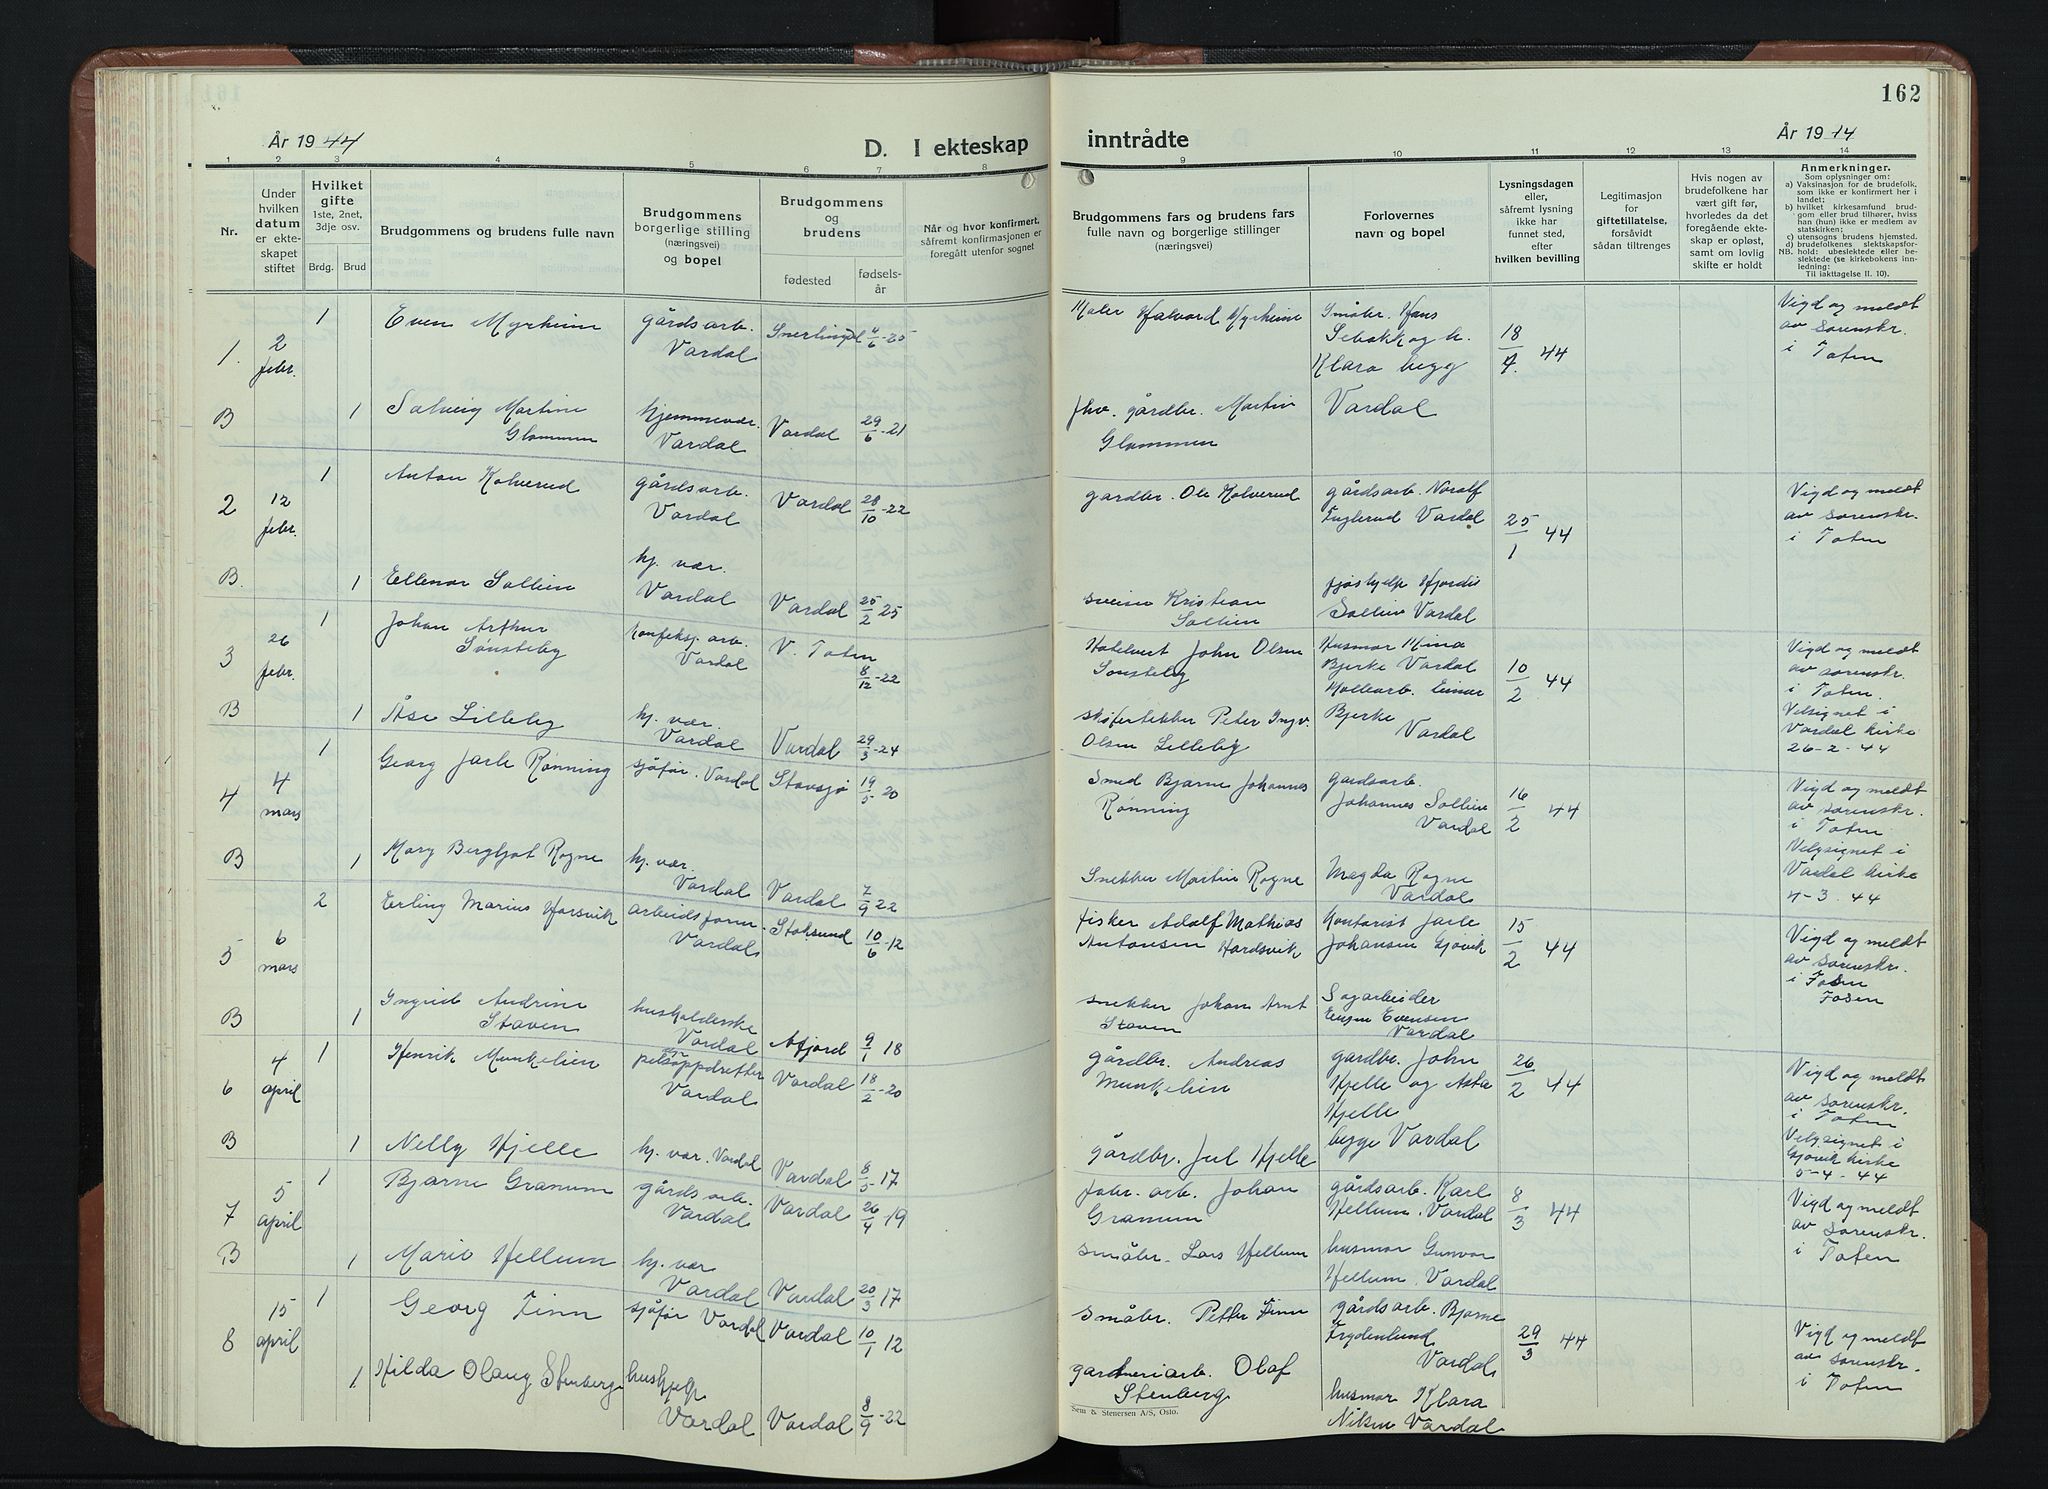 162
År 1944
D. I ekteskap
inntrådte
År 1944
1 2 3 4 5 6 7 8 9 10 11 12 13 14
Nr.
Under
hvilken
datum
er ekte-
skapet
stiftet
Hvilket
gifte
1ste, 2net,
3dje osv.
Brdg. Brud
Brudgommens og brudens fulle navn
Brudgommens
borgerlige stilling
(næringsvei)
og bopel
Brudgommens
og
brudens
fødested
fødsels-
år
Når og hvor konfirmert,
såfremt konfirmasjonen er
foregått utenfor sognet
Brudgommens fars og brudens fars
fulle navn og borgerlige stillinger
(næringsvei)
Forlovernes
navn og bopel
Lysningsdagen
eller,
såfremt lysning
ikke har
funnet sted,
efter
hvilken bevilling
Legitimasjon
for
giftetillatelse,
forsåvidt
sådan tiltrenges
Hvis nogen av
brudefolkene har
vært gift før,
hvorledes da det
foregående ekte-
skap er opløst,
samt om lovlig
skifte er holdt
Anmerkninger.
Som oplysninger om:
a) Vaksinasjon for de brudefolk,
som ikke er konfirmert her i
landet;
b) hvilket kirkesamfund brud-
gom eller brud tilhører, hviss
han (hun) ikke er medlem av
statskirken;
c) utensogns brudens hjemsted.
d) brudefolkenes slektskapsfor-
NB. hold: ubeslektede eller be-
slektede (se kirkebokens inn-
ledning:
Til iakttagelse II. 10).
1. 2 febr. 1 Even Myrheim gårdsarb. Vardal Snertingdal 4/6-25
Maler Halvord Myrheim Småbr. Hans
Sebakk og h.
Klara begg
Vardal
18/4. 44
Vigd og meldt
av Sorenskr.
i Toten
B 1 Solveig Martine
Glommen
hjemmevær.
Vardal Vardal 29/6-21
fhv. gårdbr. Martin
Glommen
2 12 febr. 1 Anton Kolverud gårdsarb.
Vardal Vardal 28/10-22
gardbr. Ole Kolverud gårdsarb. Noralf
Fuglerud Vardal 25/1 44
Vigd og meldt
av sorenskr.
i Toten
B. 1 Ellenor Sollien hj. vær.
Vardal Vardal 25/2 25
sveiser Kristian
Sollien
fjøshjelp Hjordis
Sollien Vardal
3 26 febr. 1 Johan Arthur
Sønsteby
konfeksj. arb.
Vardal V. Toten
8/12-22
Hotelvert John Olsen
Sønsteby
Husmor Mina
Bjerke Vardal
Møllearb. Einar
Bjerke
Vardal
10/2 44
Vigd og meldt
av sorenskr.
i Toten.
Velsignet i
Vardal kirke
26-2-44
B 1 Åse Lilleby hj. vær.
Vardal Vardal 29/3-24
skifertekker Peter Ingv.
Olsen Lilleby
4 4 mars 1 Georg Jarle Rønning sjåfør. Vardal Stavsjø 19/5-20
Smed Bjarne Johannes
Rønning
gardsarb.
Johannes Sollien
Vardal
16/2 44
Vigd og meldt
av sorenskr.
i Toten
Velsignet i
Vardal kirke
4-3.44
B 1 Mary Bergljot Rogne hj. vær
Vardal Vardal 7/9 22
Snekker Martin Rogne Magda Rogne
Vardal
5 6 mars 2 Erling Marius Harsvik arbeidsform.
Vardal Stoksund 10/6-12
Fisker Adolf Mathias
Antonsen Hardsvik
Kontorist Jarle
Johansen Gjøvik
15/2 44
Vigd og meldt
av sorenskr.
i Fosen
Fosen
B 1 Ingrid Andrine
Staven
husholderske
Vardal Afjord 9/1 18
snekker Johan Arnt
Staven
Sagarbeider
Eugen Evensen
Vardal
6 4 april 1 Henrik Munkelien pelsdyroppdretter
Vardal Vardal 18/2-20
gårdbr. Andreas
Munkelien
gardbr. John
Hjelle og Asta
Hjelle
begge Vardal
26/2 44
Vigd og meldt
av sorenskr.
i Toten
Velsignet i
Gjøvik kirke
5-4-44
B 1 Nelly Hjelle hj. vær. Vardal Vardal 8/5-17
gårdbr. Jul Hjelle
7 5 april 1 Bjarne Granum gårdsarb.
Vardal Vardal 26/4-19
fabr. arb. Johan
Granum
gårdsarb. Karl
Hellum. Vardal
8/3 44
Vigd og meldt
av sorenskr.
i Toten
B 1 Marie Hellum hj. vær
Vardal Vardal 20/3 17
småbr. Lars Hellum husmor Gunvor
Hellum. Vardal
8 15 april 1 Georg Finn sjåfør Vardal Vardal 10/1 12
småbr. Petter Finn gårdsarb. Bjarne
Frydenlund
Vardal
29/3 44
Vigd og meldt
av sorenskr.
i Toten
1 Hilda Olaug Stenberg hushjelp
Vardal Vardal 8/9-22
gartneriarb. Olaf
Stenberg
husmor Klara
Nilsen Vardal
Sem & Stenersen A/S, Oslo.